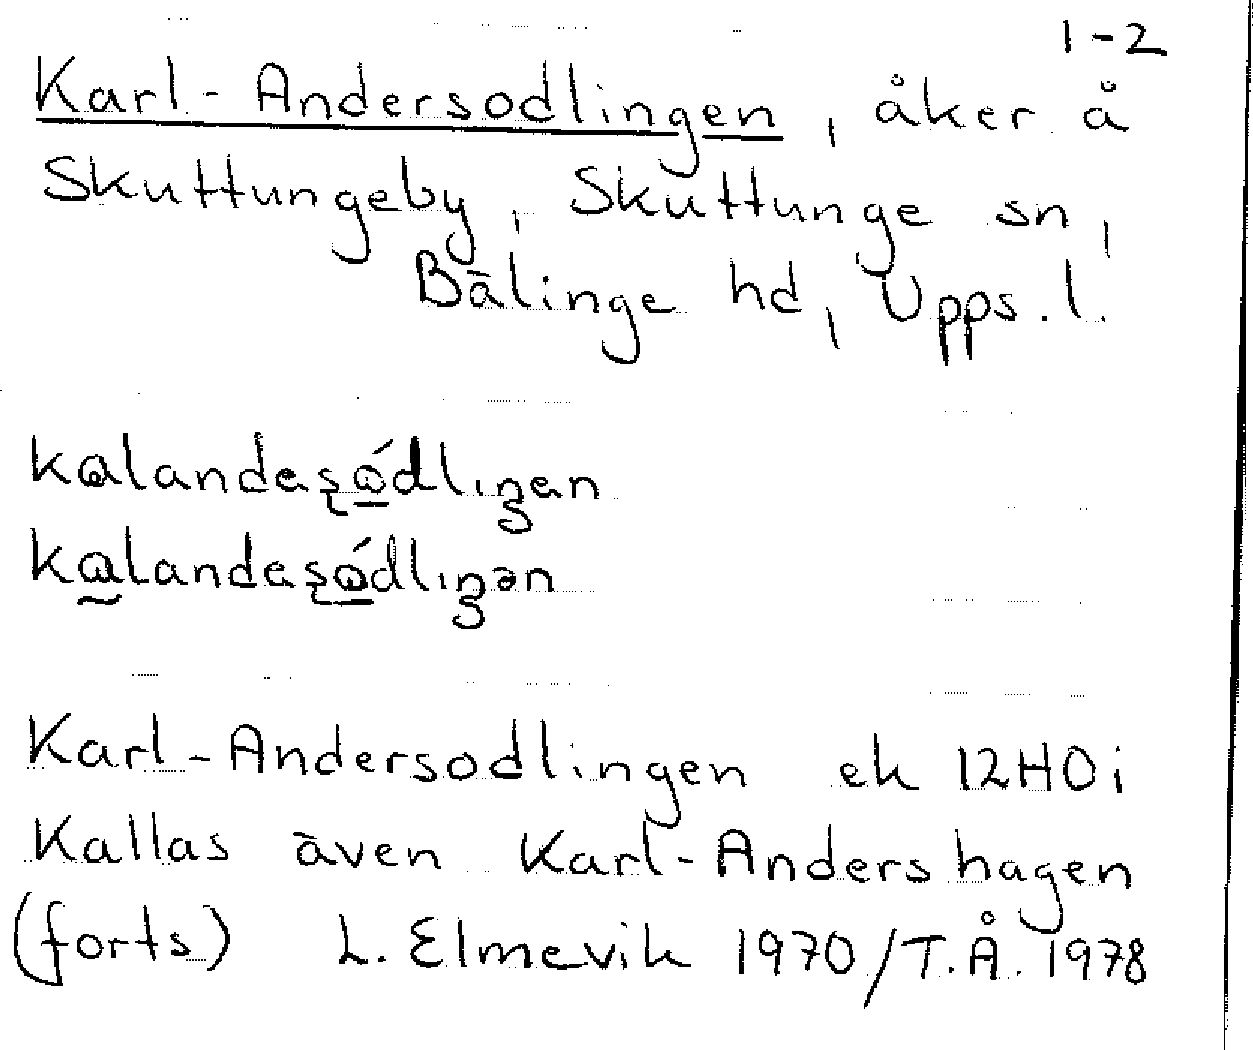 1-2
Karl-Andersodlingen, åker å
Skuttungeby, Skuttunge sn,
Bälinge hd, Upps.l.
Karl-Andersodlingen ek 12H0i
Kallas även Karl-Andershagen
(forts) L. Elmevik 1970/T.Å. 1978